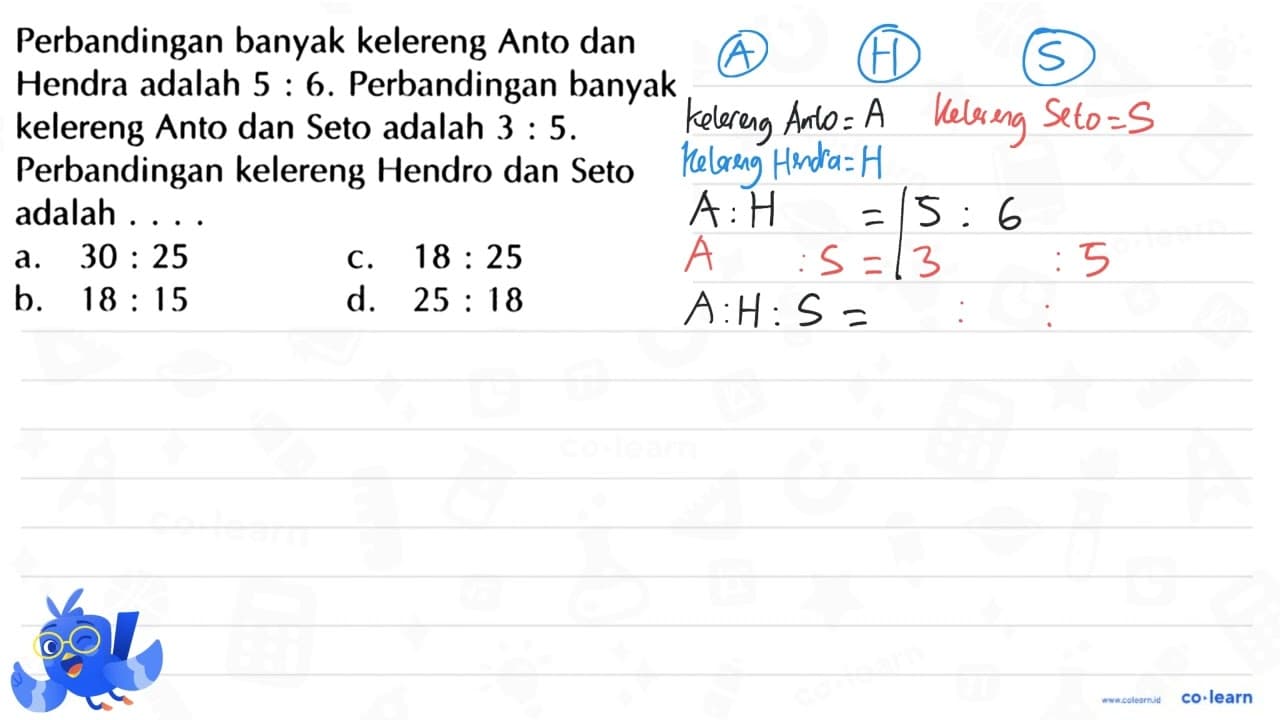 Perbandingan banyak kelereng Anto dan
Hendra adalah 5 : 6. Perbandingan banyak
kelereng Anto dan Seto adalah 3 : 5.
Perbandingan kelereng Hendro dan Seto
adalah . . . .
a. 30 : 25 c. 18 : 25
b. 18 : 15 d. 25 : 18
A H S
kelereng Anto = A kelereng Seto = S
kelereng Hendra = H
A : H = 5 : 6
A : S = 3 : 5
A : H : S = : :
www.colearn.id co·learn